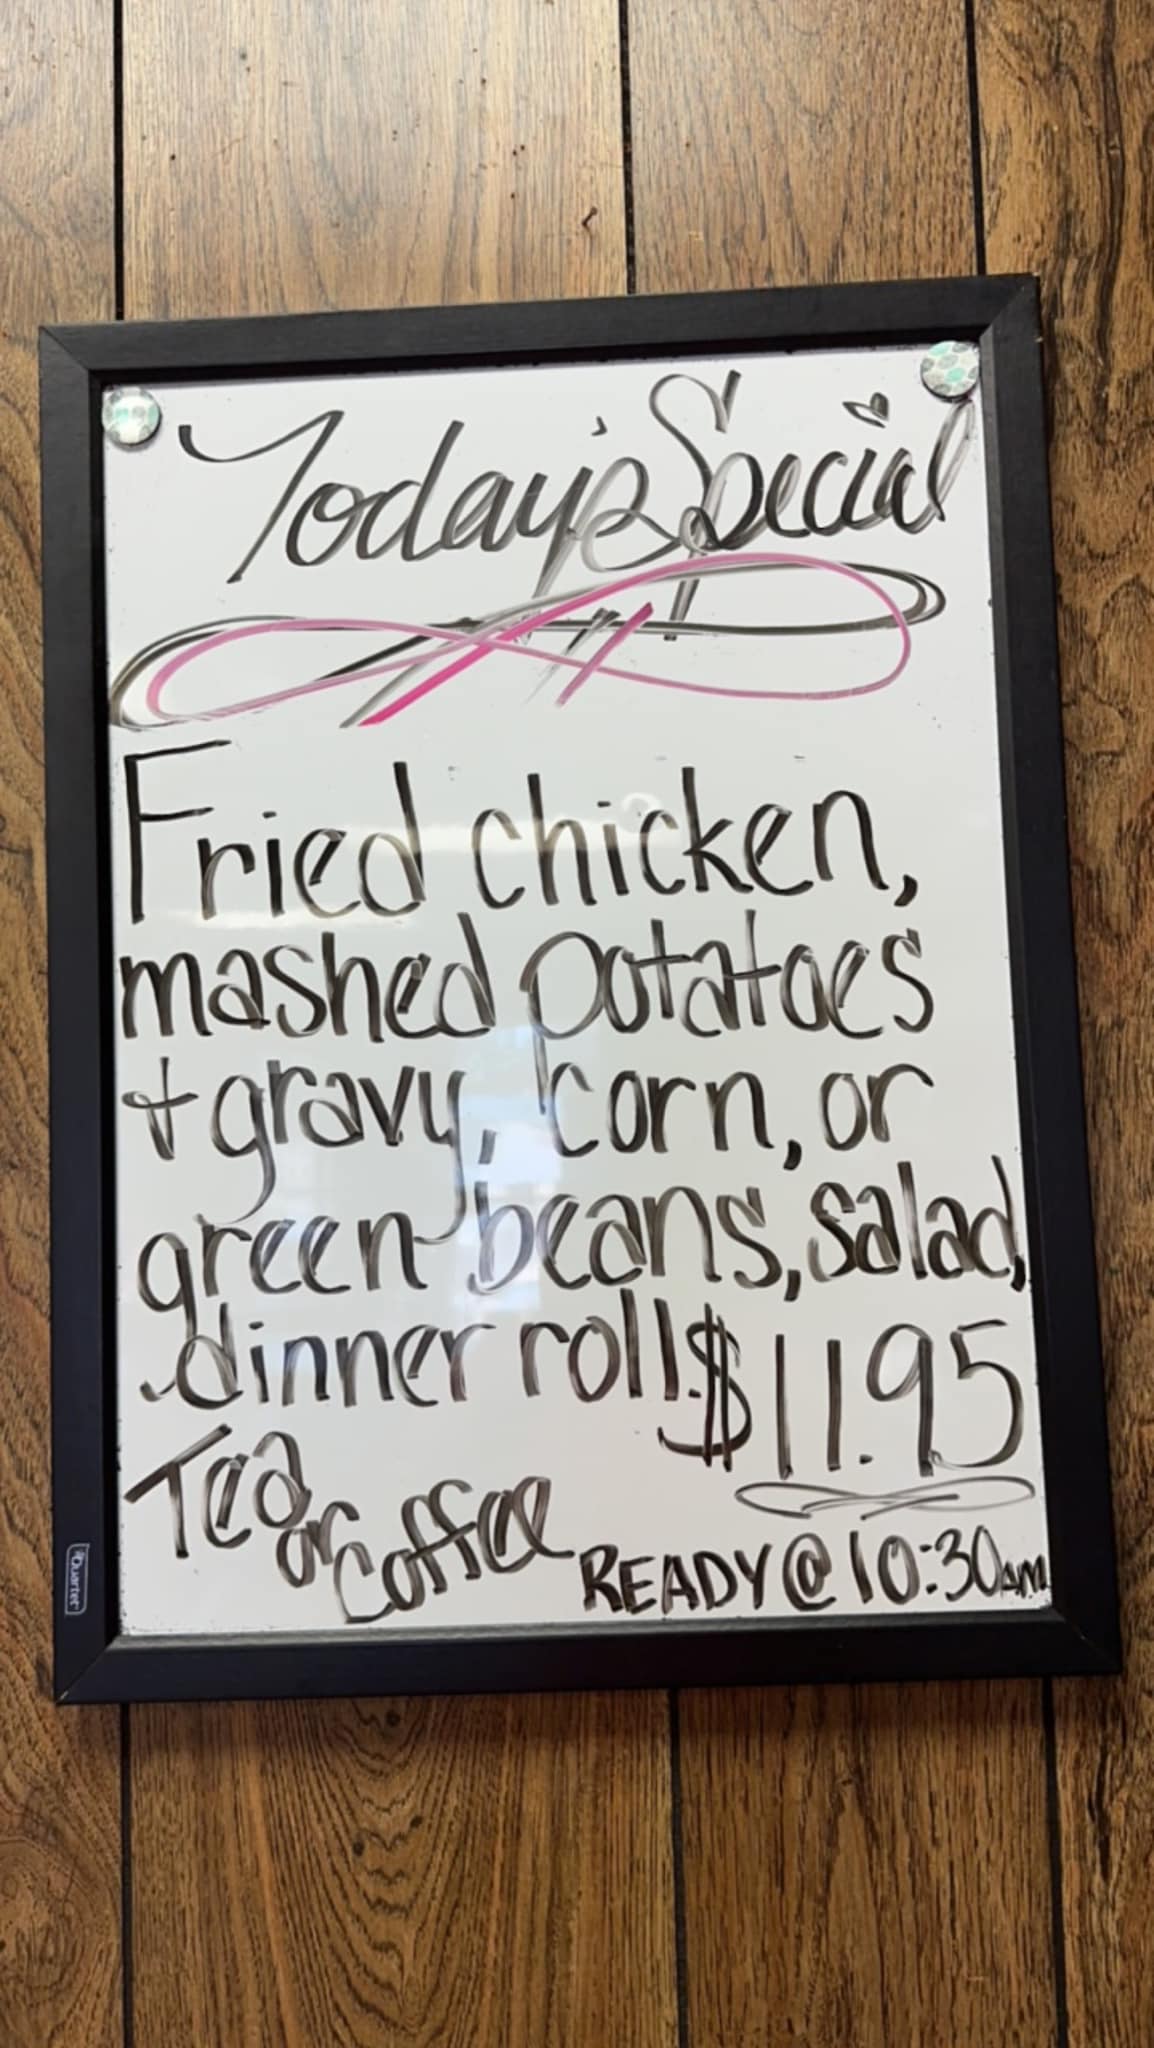 Today's Special
Fried chicken,
mashed potatoes
+ gravy, corn, or
green beans, salad,
dinner roll. $11.95
Tea or Coffee
READY @ 10:30 AM
Quartet